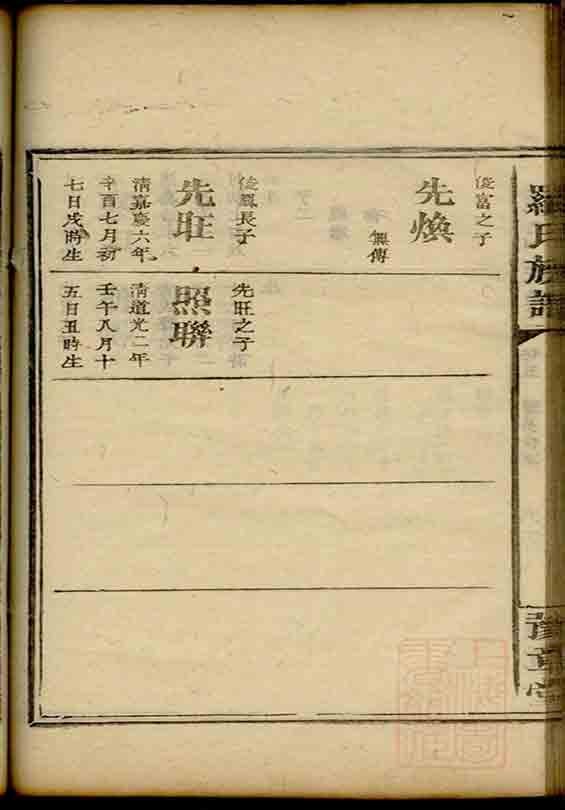 羅氏族譜
豫章堂
從富之子
先煥
無傳
從鳳長子
先旺
清嘉慶六年
辛酉七月初
七日戌時生
先旺之子
照聯
清道光二年
壬午八月十
五日丑時生